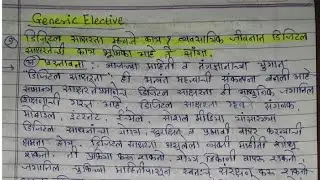 Generic Elective
डिजिटल साक्षरता म्हणजे काय? व्यवसायिक जीवनात डिजिटल
साक्षरतेची काय भूमिका आहे ते सांगा.
प्रस्तावना: आजच्या माहिती व तंत्रज्ञानाच्या युगात
डिजिटल साक्षरता ही अत्यंत महत्वाची संकल्पना बनली आहे
साक्षरतेप्रमाणेच डिजिटल साक्षरता ही आधुनिक जगातील
गरज आहे. डिजिटल साक्षरता म्हणजे संगणक,
मोबाईल, इंटरनेट, ईमेल, सोशल मीडिया यांसारख्या
डिजिटल साधनांचा योग्य सुरक्षित व प्रभावी वापर करण्याची
क्षमता होय. डिजिटल साक्षर असलेला व्यक्ती माहिती शोधू
शकतो, ती करू शकतो, योग्य ठिकाणी वापरू शकतो,
माहितीपासून स्वतःचे संरक्षण करू शकतो